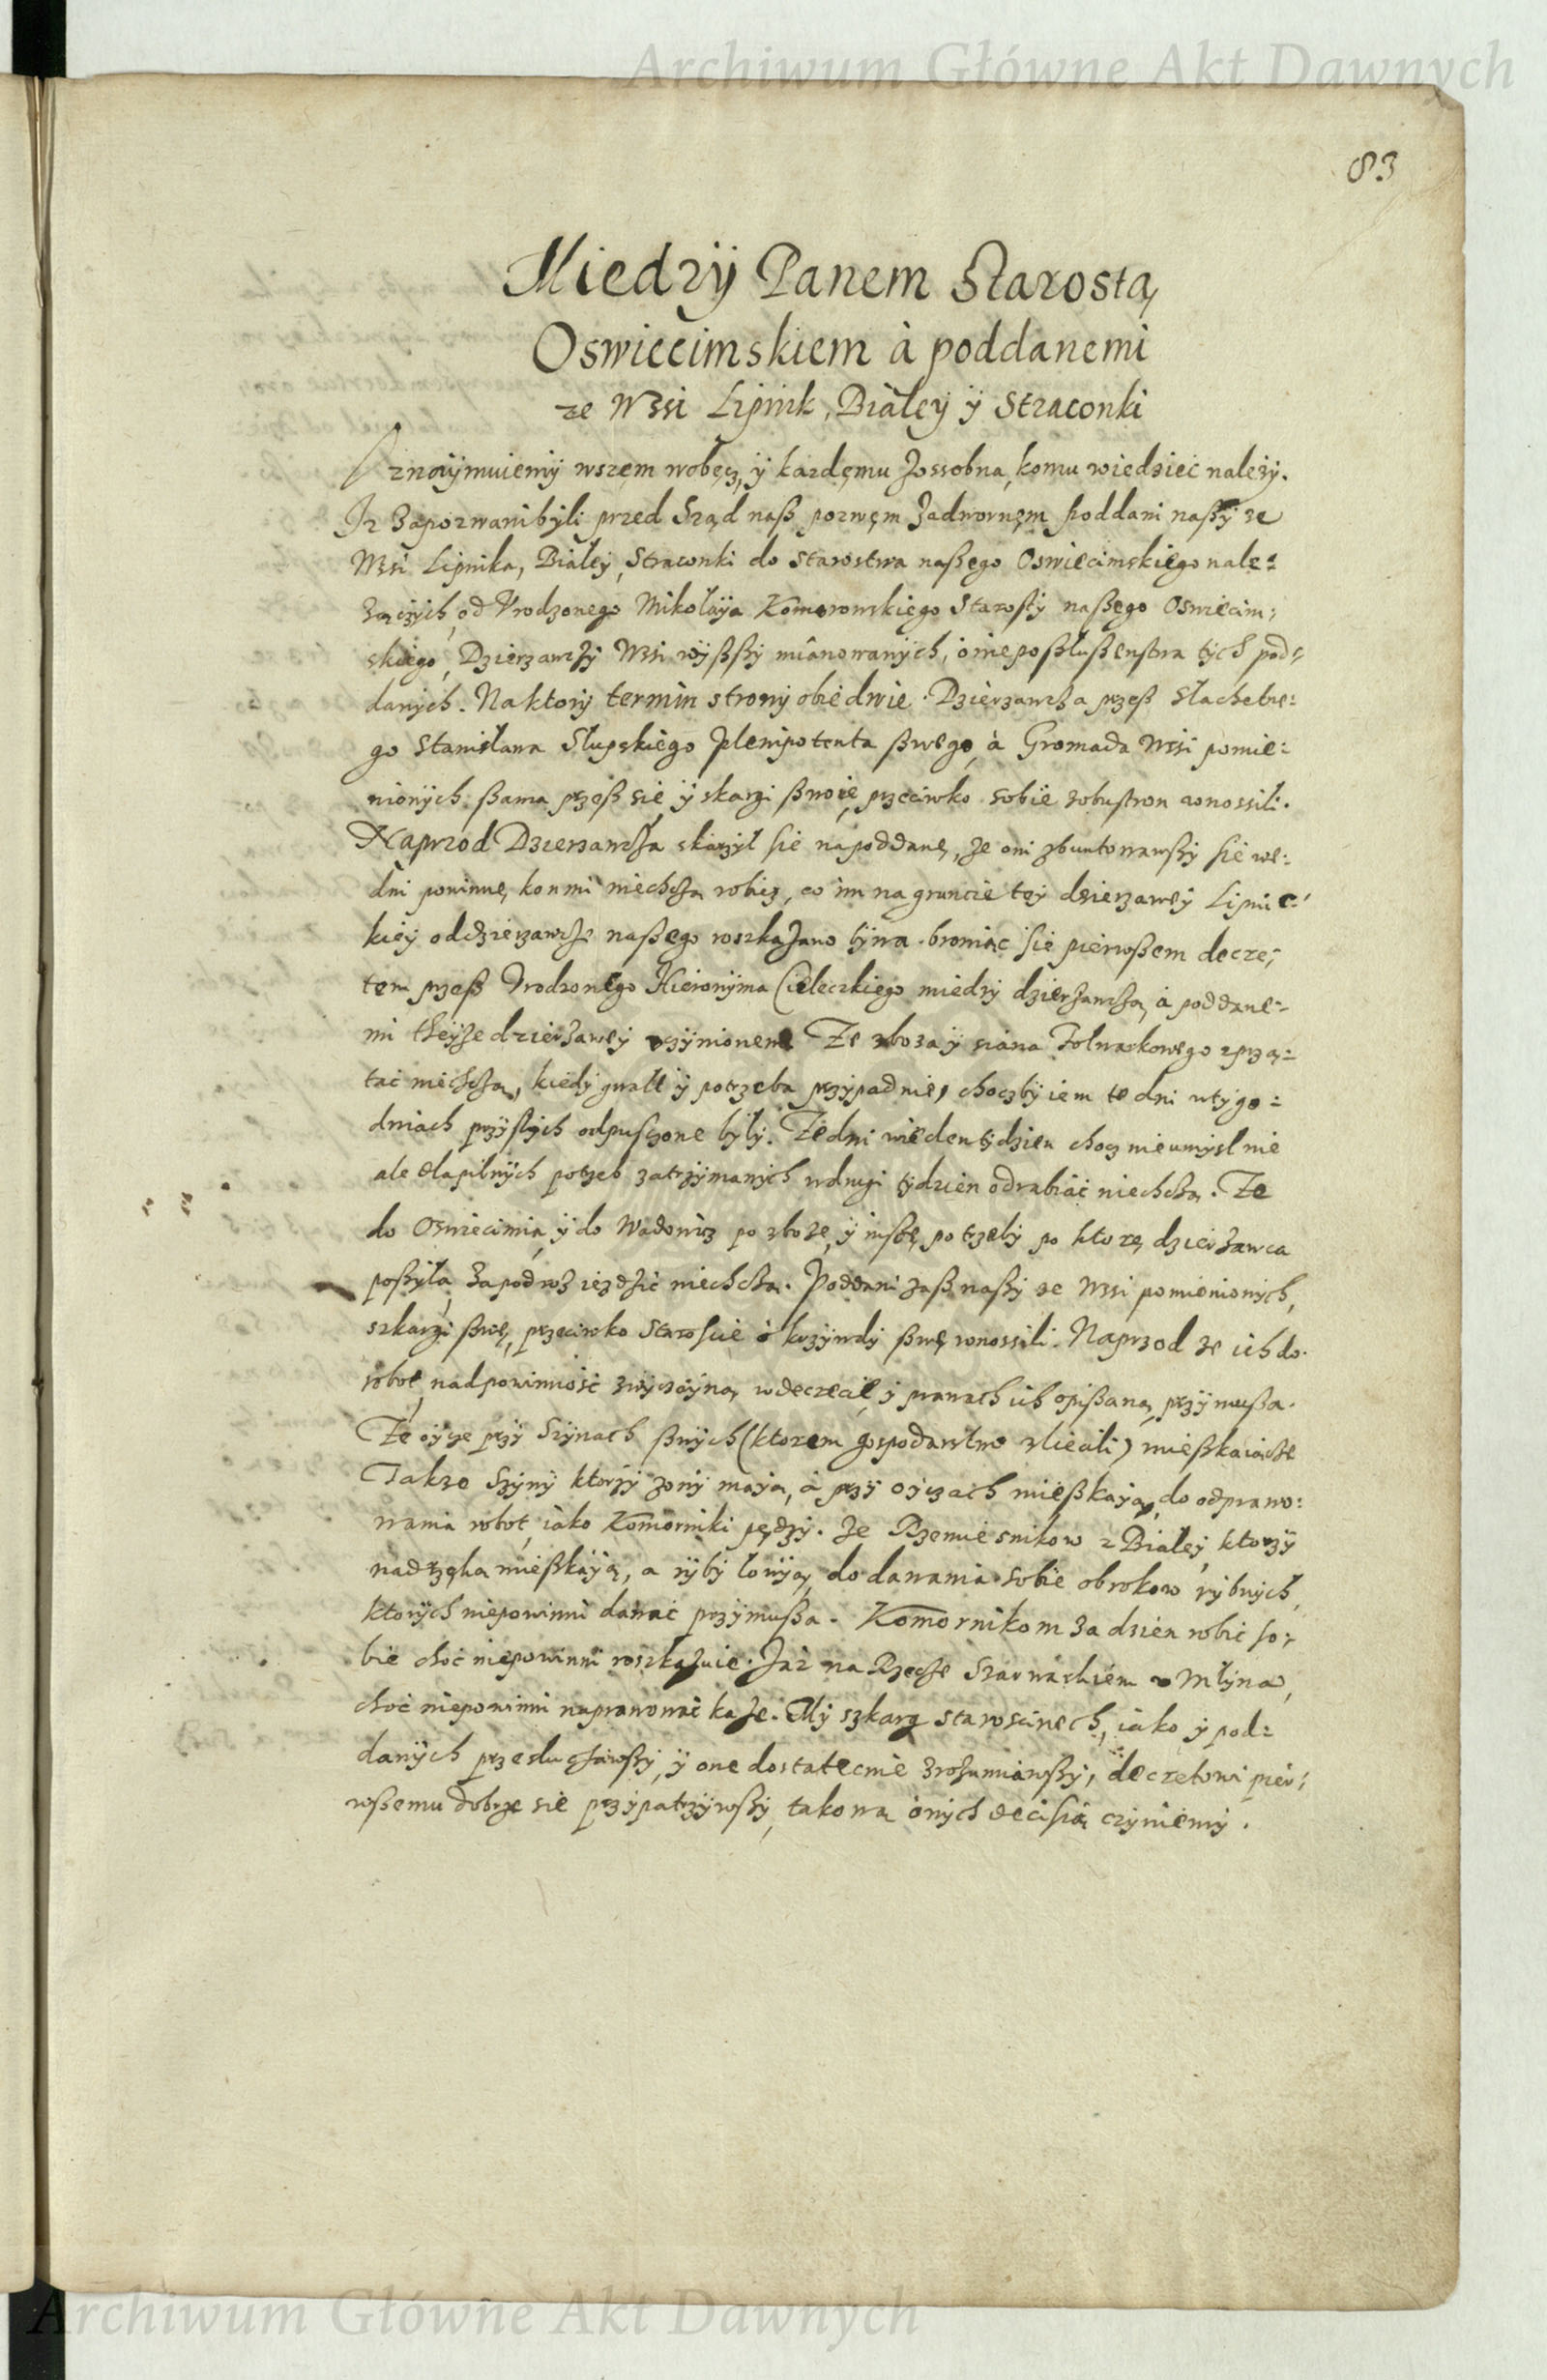 Archiwum Główne Akt Dawnych
83
Miedzÿ Panem Starostą
Oswiecimskiem à poddanemi
ze Wssi Lipnik, Białeÿ ÿ Straconki
oznaÿmuiemÿ wszem wobecz, ÿ kazdęmu zossobna, komu wiedziec należÿ.
Iz Zapozwani bÿli przed Sząd naß pozwęm Zadwornęm poddani naßÿ ze
Wsi Lipnika, Białeÿ, Straconki do Starostwa naßęgo Oswiecimskięgo nale=
Zączÿch, od Vrodzonego Mikołaÿa Komorowskiego Starostÿ naßęgo Oswiecim=
skięgo, Dzierzawczÿ Wsi wÿßßÿ miânowanÿch, o nieposłußenstwa tÿch pod=
danÿch. Na ktorÿ termin stronÿ obiedwie. Dzierzawcza przeß Slachetne=
go Stanisława Słupskięgo Plenipotenta ßwego, à Gromada Wsÿ pomie=
nionÿch ßama przeß się, ÿ skargi ßwoię, przeciwko sobie zobustron wnossili.
Naprzod Dzierzawcza skarzÿł się na poddanę, ze oni zbuntowawßÿ się we=
dni powinnę, konmi niechczą robicz, co im na gruncie teÿ dzierzawÿ Lipnic=
kieÿ od dzierzawcze naßego roskazano bÿwa. broniąc się pierwßem decre=
tem przeß Vrodzonęgo Hieronÿma Cieleczkiego miedzÿ dzierzawczą, à poddane=
mi theÿze dzierzawÿ vczÿnionem. Ze zboza ÿ siana Folwarkowego zprzą=
tać niechczą, kiedÿ gwałt ÿ potrzeba przÿpadnie, choczbÿ iem te dni w tÿgo=
dniach przÿßłÿch odpusczone bÿłÿ. Ze dni w ieden tÿdzien chocz nieumÿslnie
ale dla pilnÿch potrzeb zatrzÿmanÿch w drugi tÿdzien odrabiać niechczą. Ze
do Oswiecimia, ÿ do Wadowicz po zboze, ÿ inßę potrzebÿ po ktorę dzierzawca
poßÿła, Za podwoz iezdzić niechczą. Poddani zaß naßÿ ze Wsi pomienionÿch,
szkargi ßwę, przeciwko Staroscie ô krzÿwdÿ ßwę wnossili. Naprzod ze ich do
robot nad powinność zwÿczaÿną, w decrecie, ÿ prawach ich opißaną, przÿmußa.
Ze oÿcze przÿ Szÿnach ßwÿch (ktorem gospodarstwo zliecili) mießkaiącze
Takze Szÿnÿ ktorzÿ zonÿ maią, à przÿ oÿczach mießkaią, do odprawo=
wania robot, iako Komorniki pędzi. Ze Rzemiesnikow z Białeÿ, ktorzÿ
nad rzęką mießkaÿą, a rÿbÿ łowią, do dawania sobie obrokow rÿbnÿch,
ktorÿch niepowinni dawać przÿmußa. Komornikom Za dzien robić so=
bie choć niepowinni roszkazuie. Jaz na Rzecze Szarwarkiem v Młÿna,
choć niepowinni naprawować kaze. Mÿ szkarg staroscinech, iako ÿ pod=
danÿch przesłuchawßÿ, ÿ one dostatecnie zrozumiawßÿ, decretowi pier=
wßemu dobrze się przÿpatrzÿwßÿ, takową onÿch decisią czÿniemÿ.
Archiwum Główne Akt Dawnych